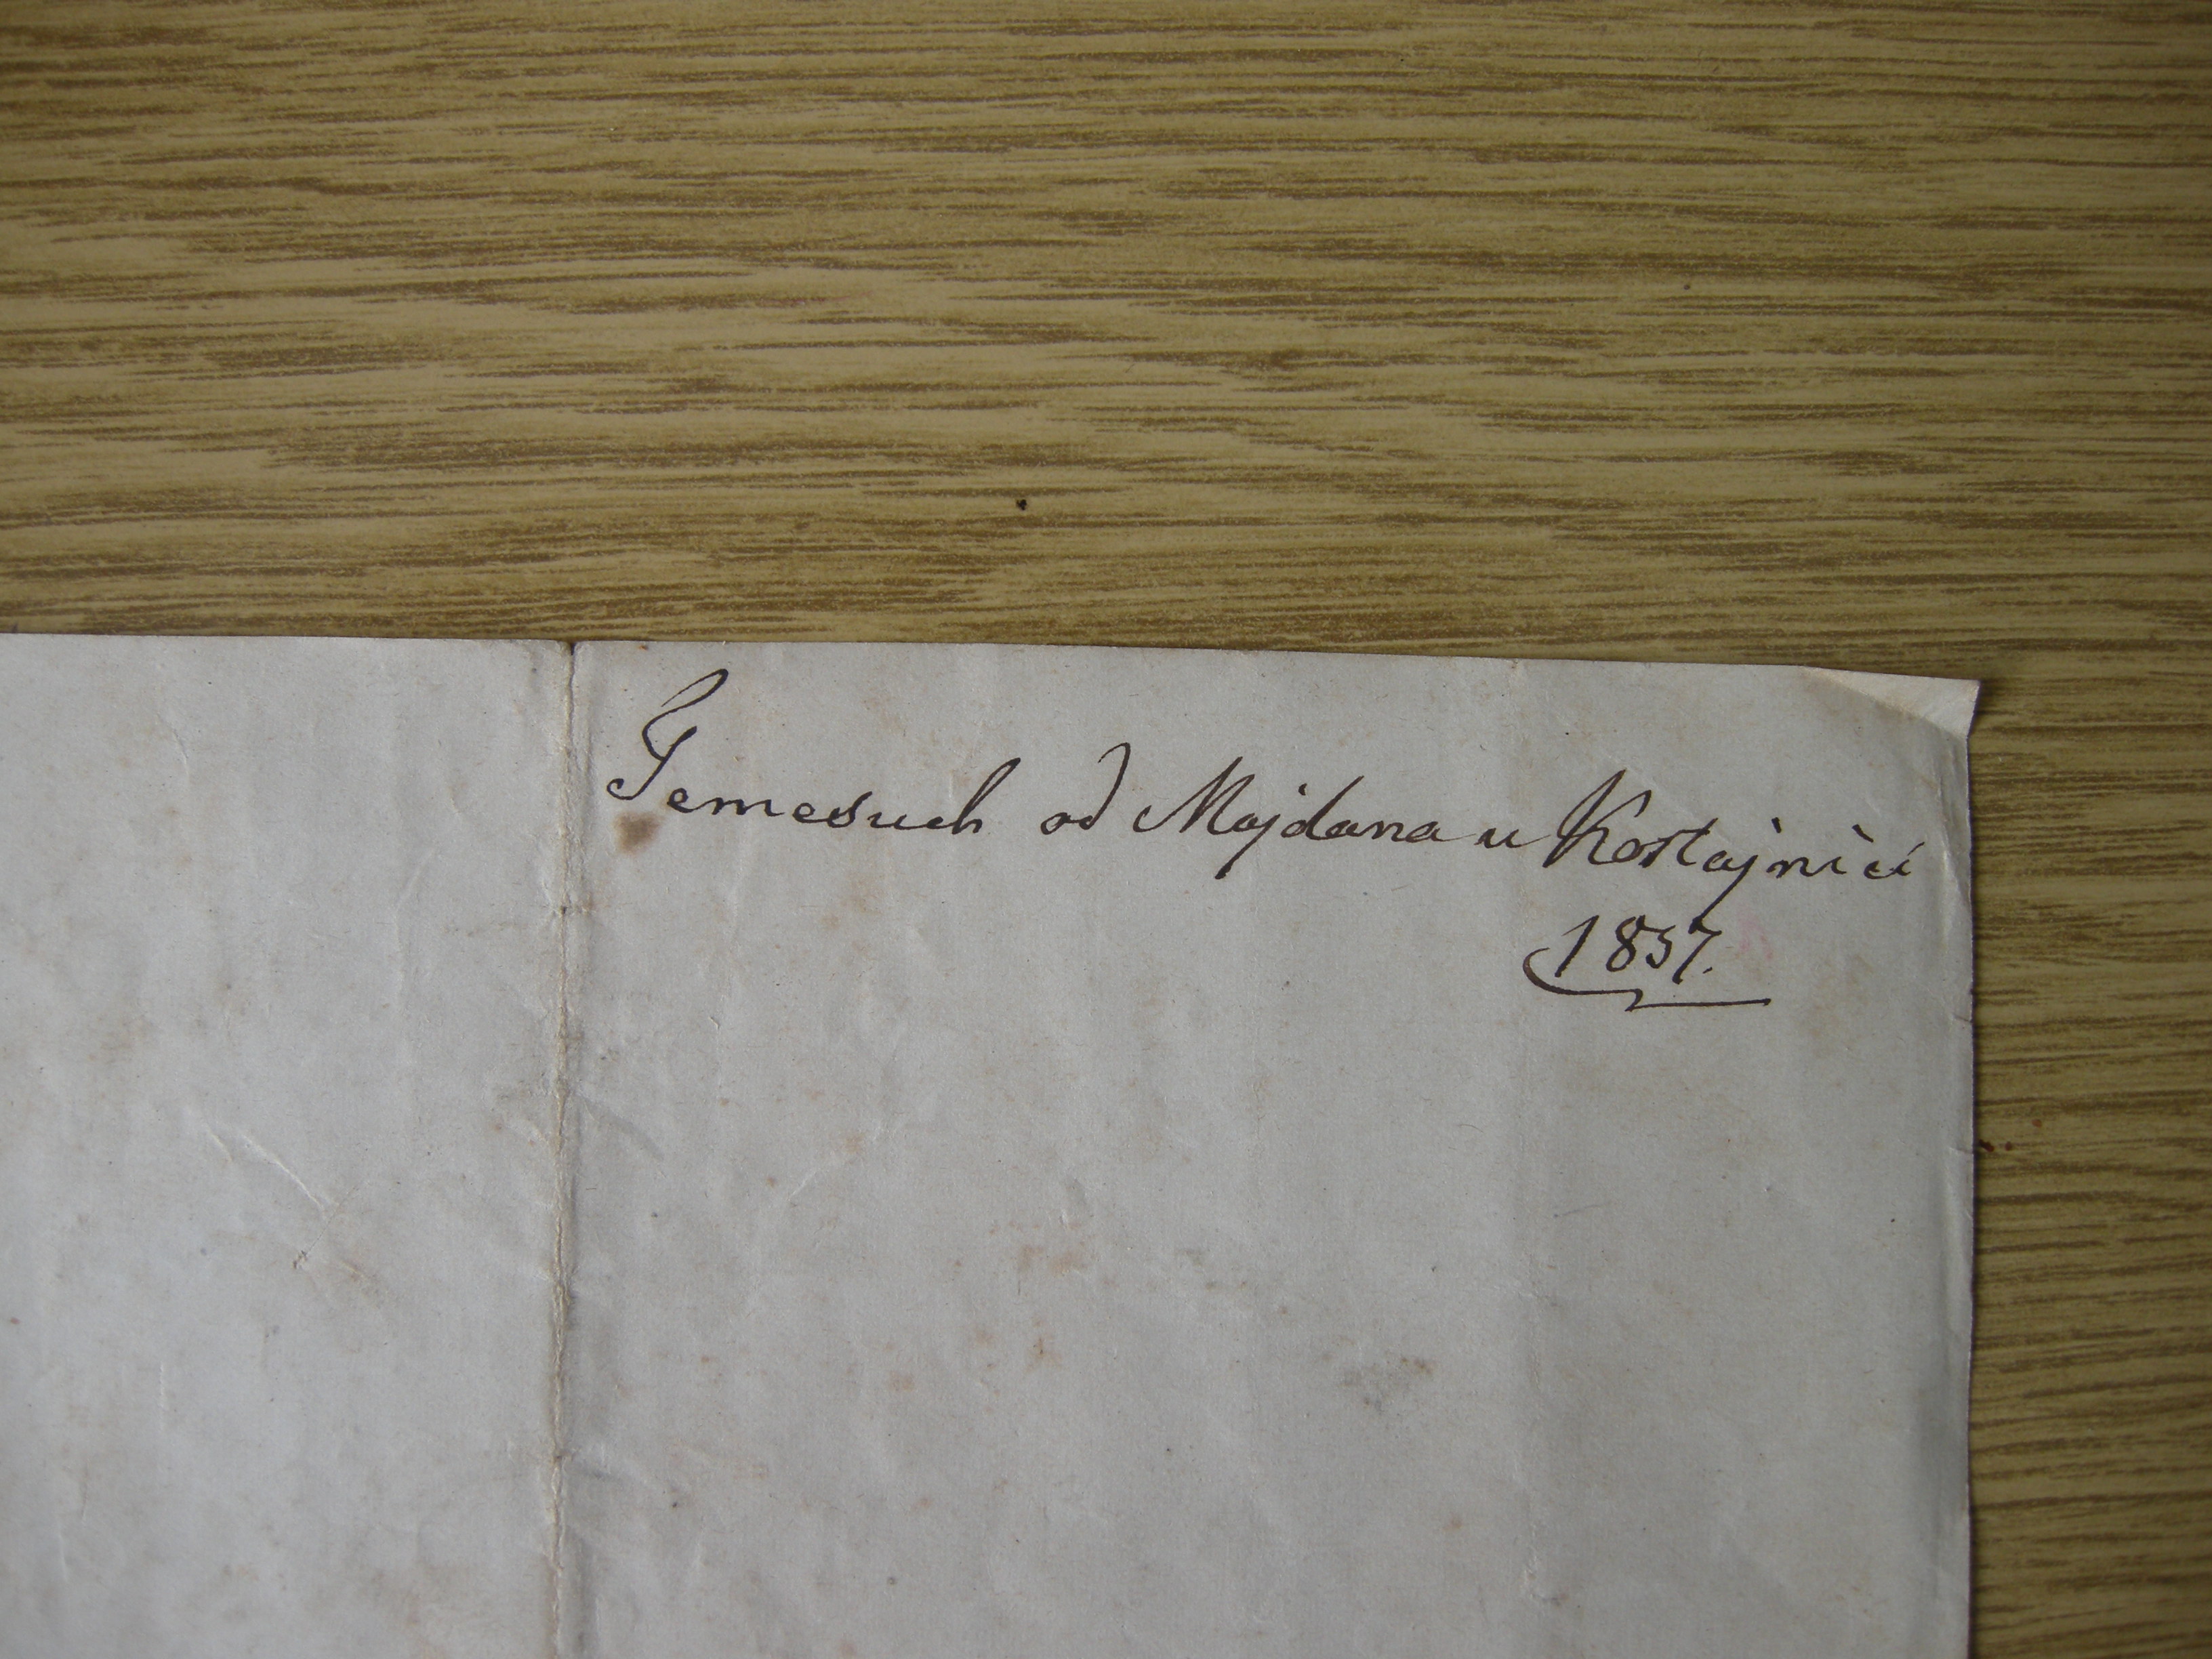 Gemesuch od Majdana u Kostajnici
1857.